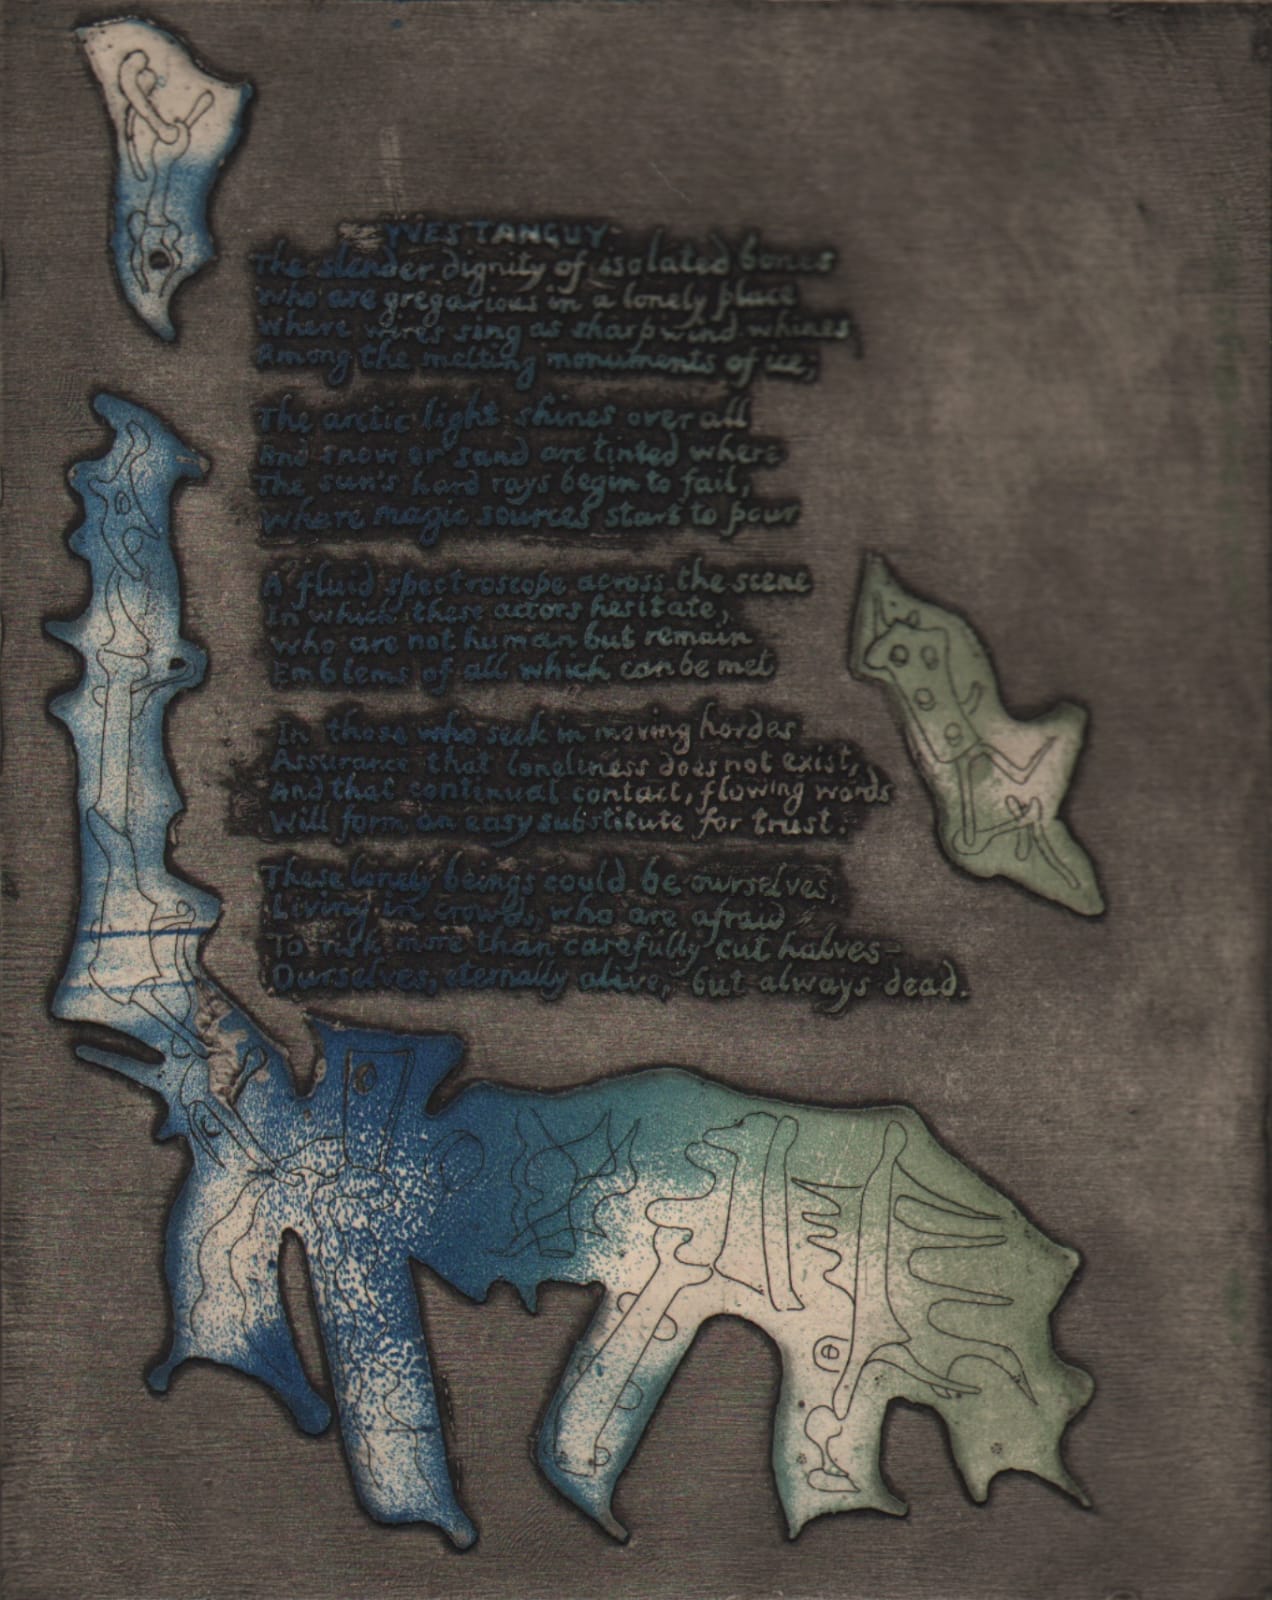 YVES TANGUY
The slender dignity of isolated bones
Who are gregarious in a lonely place
Where wires sing as sharp wind whines
Among the melting monuments of ice;
The arctic light shines over all
And snow or sand are tinted where
The sun's hard rays begin to fail,
Where magic sources start to pour
A fluid spectroscope across the scene
In which these actors hesitate,
Who are not human but remain
Emblems of all which can be met
In those who seek in moving hordes
Assurance that loneliness does not exist,
And that continual contact, flowing words
Will form an easy substitute for trust.
These lonely beings could be ourselves,
Living in crowds, who are afraid
To risk more than carefully cut halves—
Ourselves, eternally alive, but always dead.